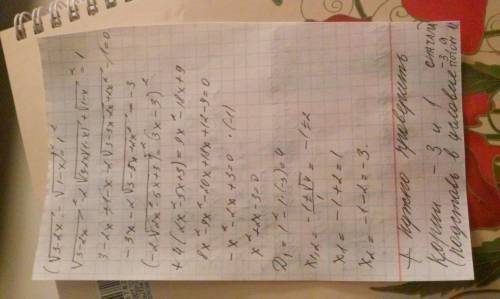 (√3-2x - √1-x)² = 1²
√3-2x² - 2√(3-2x)(1-x) + √1-x² = 1
3-2x+1-x-2√3-3x-2x+2x² -1=0
-3x-2√3-5x+2x² = -3
(-2√2x²-5x+3)² = (3x-3)²
+4(2x²-5x+3) = 9x²-18x+9
8x²-9x²-20x+18x+12-9=0
-x²-2x+3=0 ·(-1)
x²+2x-3=0
D₁=1²-1·(-3)=4
x₁,₂ = -1±√4 = -1±2
x₁ = -1+2=1
x₂ = -1-2=-3.
+ нужно проверить
Корни -3 и 1
(подставь в условие сначала -3, а потом 1)